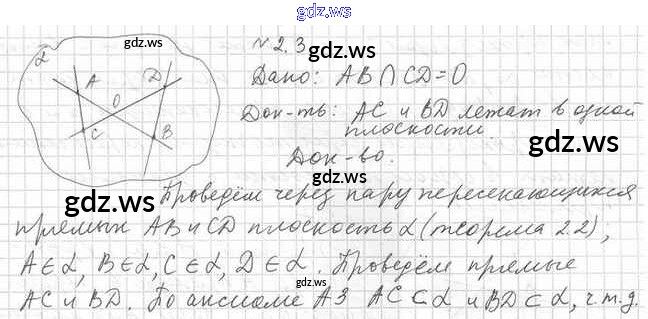 gdz.ws
gdz.ws
α
A
D
O
C
B
№ 2.3
gdz.ws
Дано: AB ∩ CD = O
Док-ть: AC и BD лежат в одной
плоскости.
gdz.ws
Док-во.
gdz.ws
Проведём через пару пересекающихся
прямых AB и CD плоскость α (теорема 2.2),
gdz.ws
A ∈ α, B ∈ α, C ∈ α, D ∈ α. Проведём прямые
AC и BD. По аксиоме A3 AC ⊂ α и BD ⊂ α, ч.т.д.
gdz.ws
gdz.ws